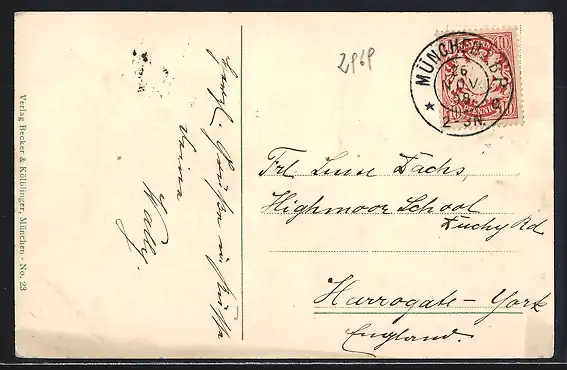 Verlag Becker & Kölblinger, München - No. 23
Herzl. Grüße u. Küsse
Deine
Wally.
2969
MÜNCHEN
6
NOV.
2-3N.
10
PFENNIG
Frl. Luise Dachs,
Highmoor School
Duchy Rd
Harrogate - York
England.